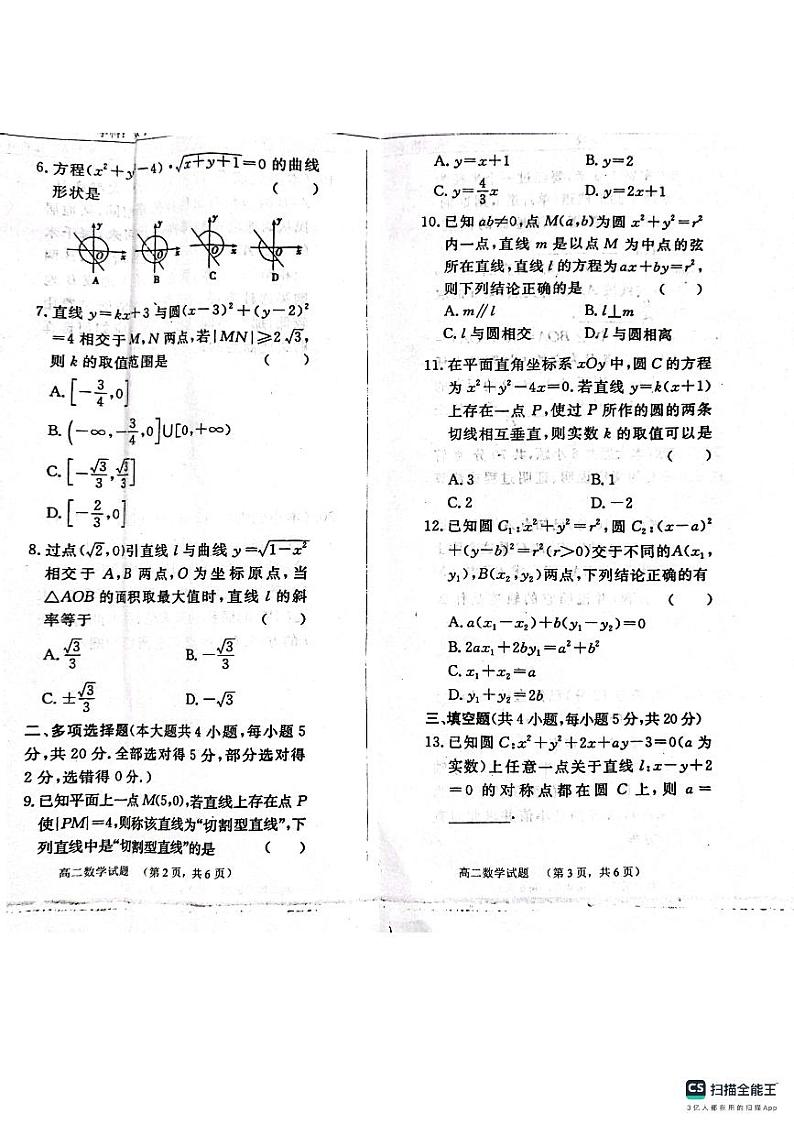 6. 方程(x²+y²-4)·√(x+y+1)=0 的曲线
形状是 ( )
y
O
x
A
y
O
x
B
y
O
x
C
y
O
x
D
7. 直线 y=kx+3 与圆(x-3)²+(y-2)²
=4 相交于 M,N 两点,若|MN|≥2√3,
则 k 的取值范围是 ( )
A. [-3/4,0]
B. (-∞,-3/4,0]∪[0,+∞)
C. [-√3/3,√3/3]
D. [-2/3,0]
8. 过点(√2,0)引直线 l 与曲线 y=√(1-x²)
相交于 A,B 两点,O 为坐标原点,当
△AOB 的面积取最大值时,直线 l 的斜
率等于 ( )
A. √3/3 B. -√3/3
C. ±√3/3 D. -√3
二、多项选择题(本大题共 4 小题,每小题 5
分,共 20 分.全部选对得 5 分,部分选对得
2 分,选错得 0 分.)
9. 已知平面上一点 M(5,0),若直线上存在点 P
使|PM|=4,则称该直线为“切割型直线”,下
列直线中是“切割型直线”的是 ( )
高二数学试题 (第 2 页,共 6 页)
A. y=x+1 B. y=2
C. y=4/3x D. y=2x+1
10. 已知 ab≠0,点 M(a,b)为圆 x²+y²=r²
内一点,直线 m 是以点 M 为中点的弦
所在直线,直线 l 的方程为 ax+by=r²,
则下列结论正确的是 ( )
A. m∥l B. l⊥m
C. l 与圆相交 D. l 与圆相离
11. 在平面直角坐标系 xOy 中,圆 C 的方程
为 x²+y²-4x=0.若直线 y=k(x+1)
上存在一点 P,使过 P 所作的圆的两条
切线相互垂直,则实数 k 的取值可以是
( )
A. 3 B. 1
C. 2 D. -2
12. 已知圆 C₁:x²+y²=r²,圆 C₂:(x-a)²
+(y-b)²=r²(r>0)交于不同的 A(x₁,
y₁),B(x₂,y₂)两点,下列结论正确的有
( )
A. a(x₁-x₂)+b(y₁-y₂)=0
B. 2ax₁+2by₁=a²+b²
C. x₁+x₂=a
D. y₁+y₂=2b
三、填空题(共 4 小题,每小题 5 分,共 20 分)
13. 已知圆 C:x²+y²+2x+ay-3=0(a 为
实数)上任意一点关于直线 l:x-y+2
=0 的对称点都在圆 C 上,则 a=
________.
高二数学试题 (第 3 页,共 6 页)
CS 扫描全能王
3亿人都在用的扫描App